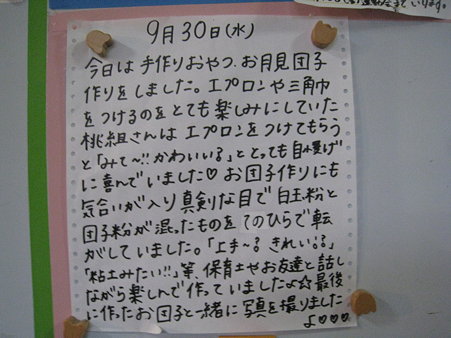 9月30日(水)
今日は手作りおやつ、お月見団子
作りをしました。エプロンや三角巾
をつけるのをとても楽しみにしていた
桃組さんはエプロンをつけてもらう
と「みて〜!!かわいい?」ととっても自慢げ
に喜んでいました♡お団子作りにも
気合いが入り真剣な目で白玉粉と
団子粉が混ったものをてのひらで転
がしていました。「上手〜?きれい??」
「粘土みたい!!」等、保育士やお友達と話し
ながら楽しんで作っていましたよ☆最後
に作ったお団子と一緒に写真を撮りました
よ♡♡♡